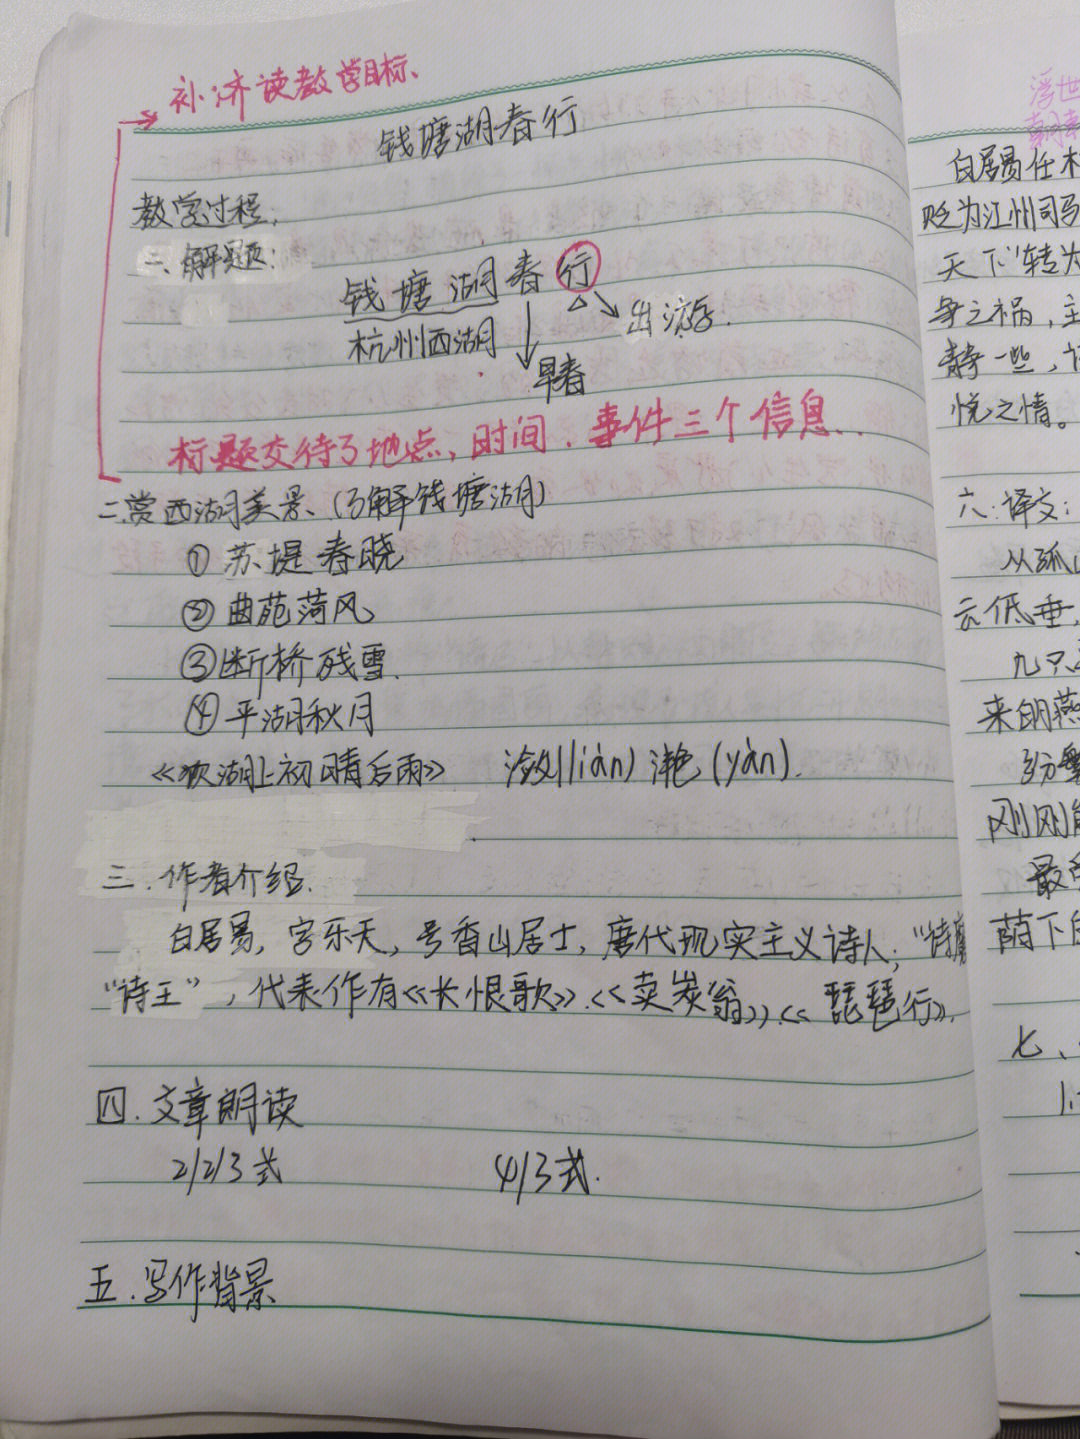 补:齐读教学目标、
钱塘湖春行
教学过程:
一、解题:
钱塘湖春行
出游.
杭州西湖
早春
标题交待了地点,时间.事件三个信息..
二.赏西湖美景.(了解钱塘湖)
①苏堤春晓
②曲苑荷风
③断桥残雪.
④平湖秋月
《饮湖上初晴后雨》 潋(liàn)滟(yàn).
三.作者介绍.
白居易,字乐天,号香山居士,唐代现实主义诗人;"诗魔
"诗王",代表作有《长恨歌》.《卖炭翁》.《琵琶行》.
四.文章朗读
2/2/3式 4/3式.
五.写作背景
浮世
白居易任杭
贬为江州司马
天下"转为
争之祸,主
静一些,
悦之情。
六:译文:
从孤山
云低垂,
九只
来的燕
纷繁
刚刚能
最
荫下的
七、